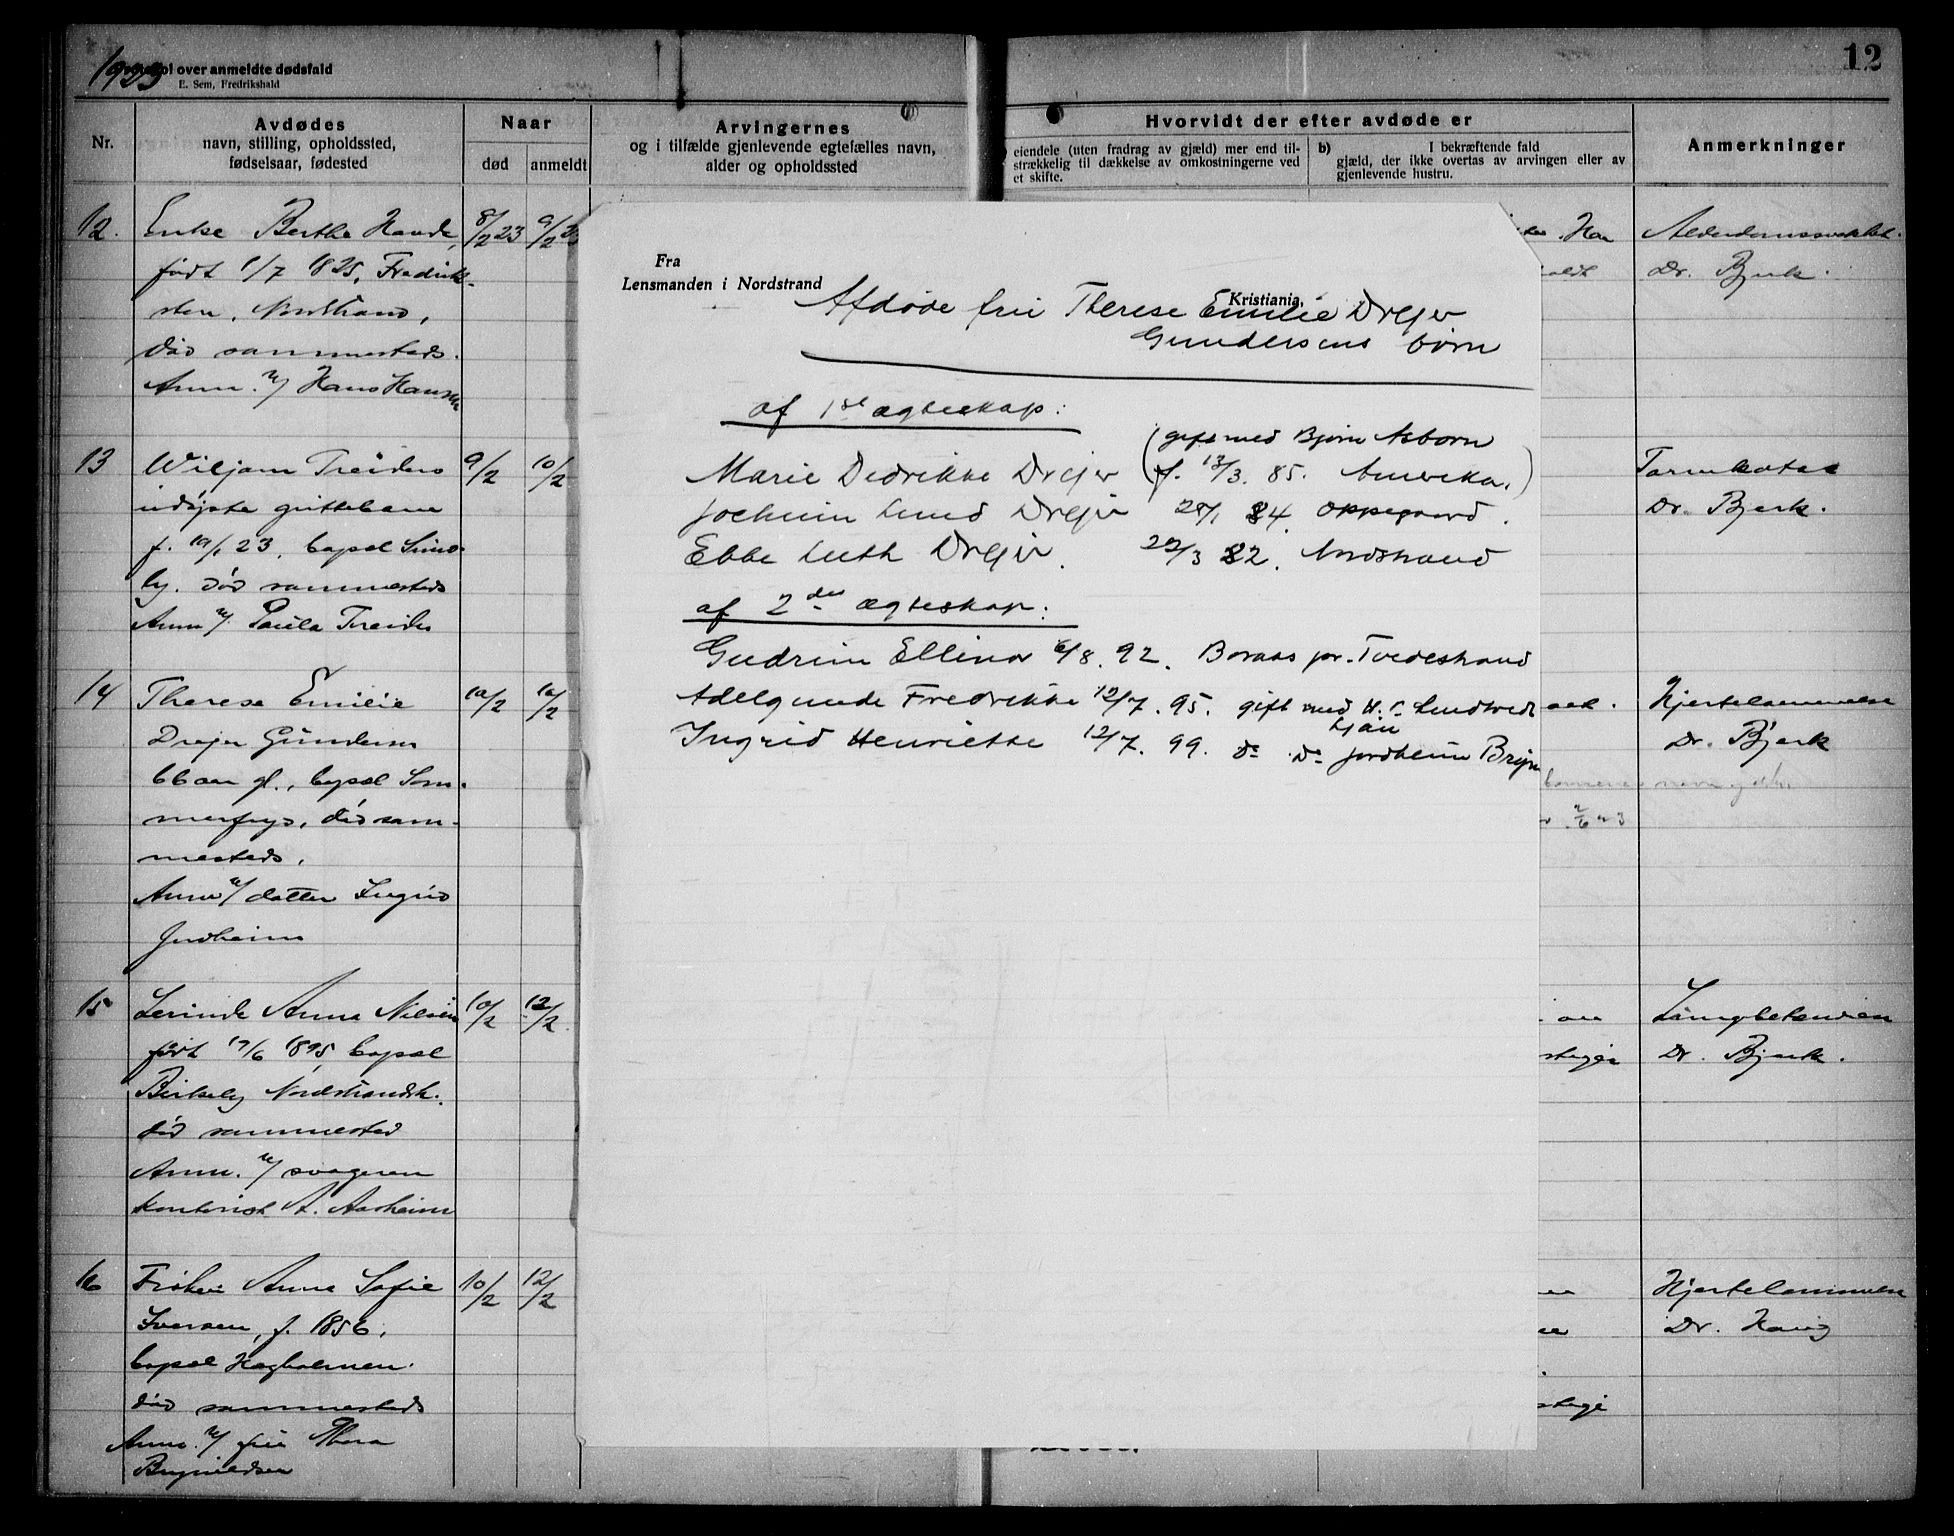 1923
Protokol over anmeldte dødsfald
E. Sem, Fredrikshald
12
Nr.
Avdødes
navn, stilling, opholdssted,
fødselsaar, fødested
Naar
død
anmeldt
Arvingernes
og i tilfælde gjenlevende egtefælles navn,
alder og opholdssted
Hvorvidt der efter avdøde er
eiendele (uten fradrag av gjæld) mer end til-
strækkelig til dækkelse av omkostningerne ved
et skifte.
b) I bekræftende fald
gjæld, der ikke overtas av arvingen eller av
gjenlevende hustru.
Anmerkninger
12. Enke Berthe 8/2 23 9/2 23
født 1/7 1825, Fredrik-
sten, Nordstrand,
død sammesteds.
Anm. v/ Hans Hansen
Alderdomssvakhet.
Dr. Bjerk.
13 Wiljam Treiders 9/2 10/2
udøpte guttebarn
f. 19/1 23, bopæl
død sammesteds
Anm v/ Paula Treider
Tarmkatar
Dr. Bjerk.
14 Therese Emilie 10/2 10/2
Drejer Gundersen
66 aar gl., bopæl Som-
merfryd, død sam-
mesteds.
Anm v/ datter Ingrid
Jordheim
Hjertelammelse
Dr. Bjerk
15 Anna Nilsen 10/2 12/2
født 17/6 1895, bopæl
Birkely Nordstrandsh.
død sammested
Anm. v/ svogeren
kontorist A. Aasheim
Lungbetændelse
Dr. Bjerk.
16 Frøken Anna Sofie 10/2 12/2
Iversen, f. 1856,
bopæl Hagholmen.
død sammesteds
Anm. v/ frú Thora
Brynildsen
Hjertelammelse
Dr. Haug
Fra
Lensmanden i Nordstrand
Kristiania,
Afdøde frú Therese Emilie Drejer
Gundersens børn
af 1ste ægteskap:
(gift med Bjørn Asbjørn
Marie Dedrikke Drejer f. 13/3. 85. Amerika.)
Jochum Lund Drejer 28/1 84. Oppegaard.
Ebbe Luth Drejer. 22/3 82. Nordstrand
af 2det ægteskap:
Gudrun Ellinor 6/8. 92. Boraas pr. Tvedestrand
Adelgunde Fredrikke 12/7. 95. gift med H.
Ljan
Ingrid Henriette 12/7. 99. Do Do Jordheim Bryn